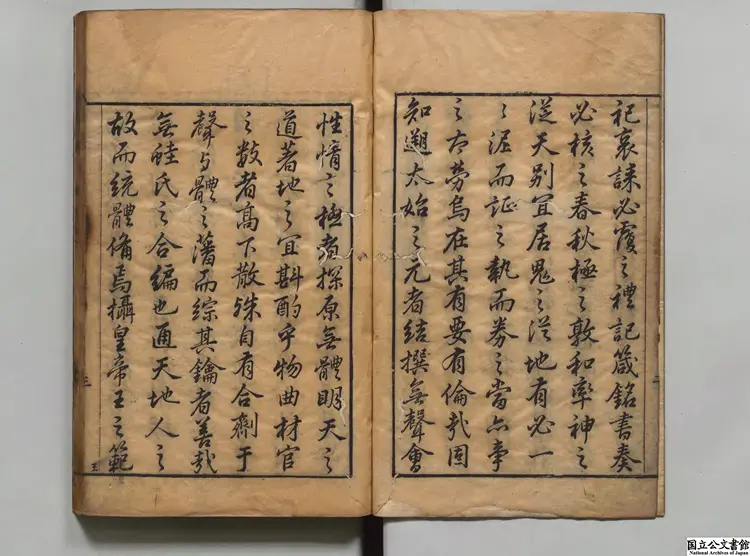 祀哀誄必覆之禮記箴銘書奏
必核之春秋極之敦和率神之
從天別宜居鬼之從地有必一
〻泥而証之執而券之當亦事
之太勞烏在其有要有倫哉固
知遡太始之元者結撰無聲會
性情之極者探原無體明天之
道著地之宜斟酌乎物曲材官
之數者高下散殊自有合劑于
聲与體之藩而綜其鑰者善哉
無鮭氏之合編也通天地人之
故而統體備焉攝皇帝王之範
二
三
王
国立公文書館
National Archives of Japan